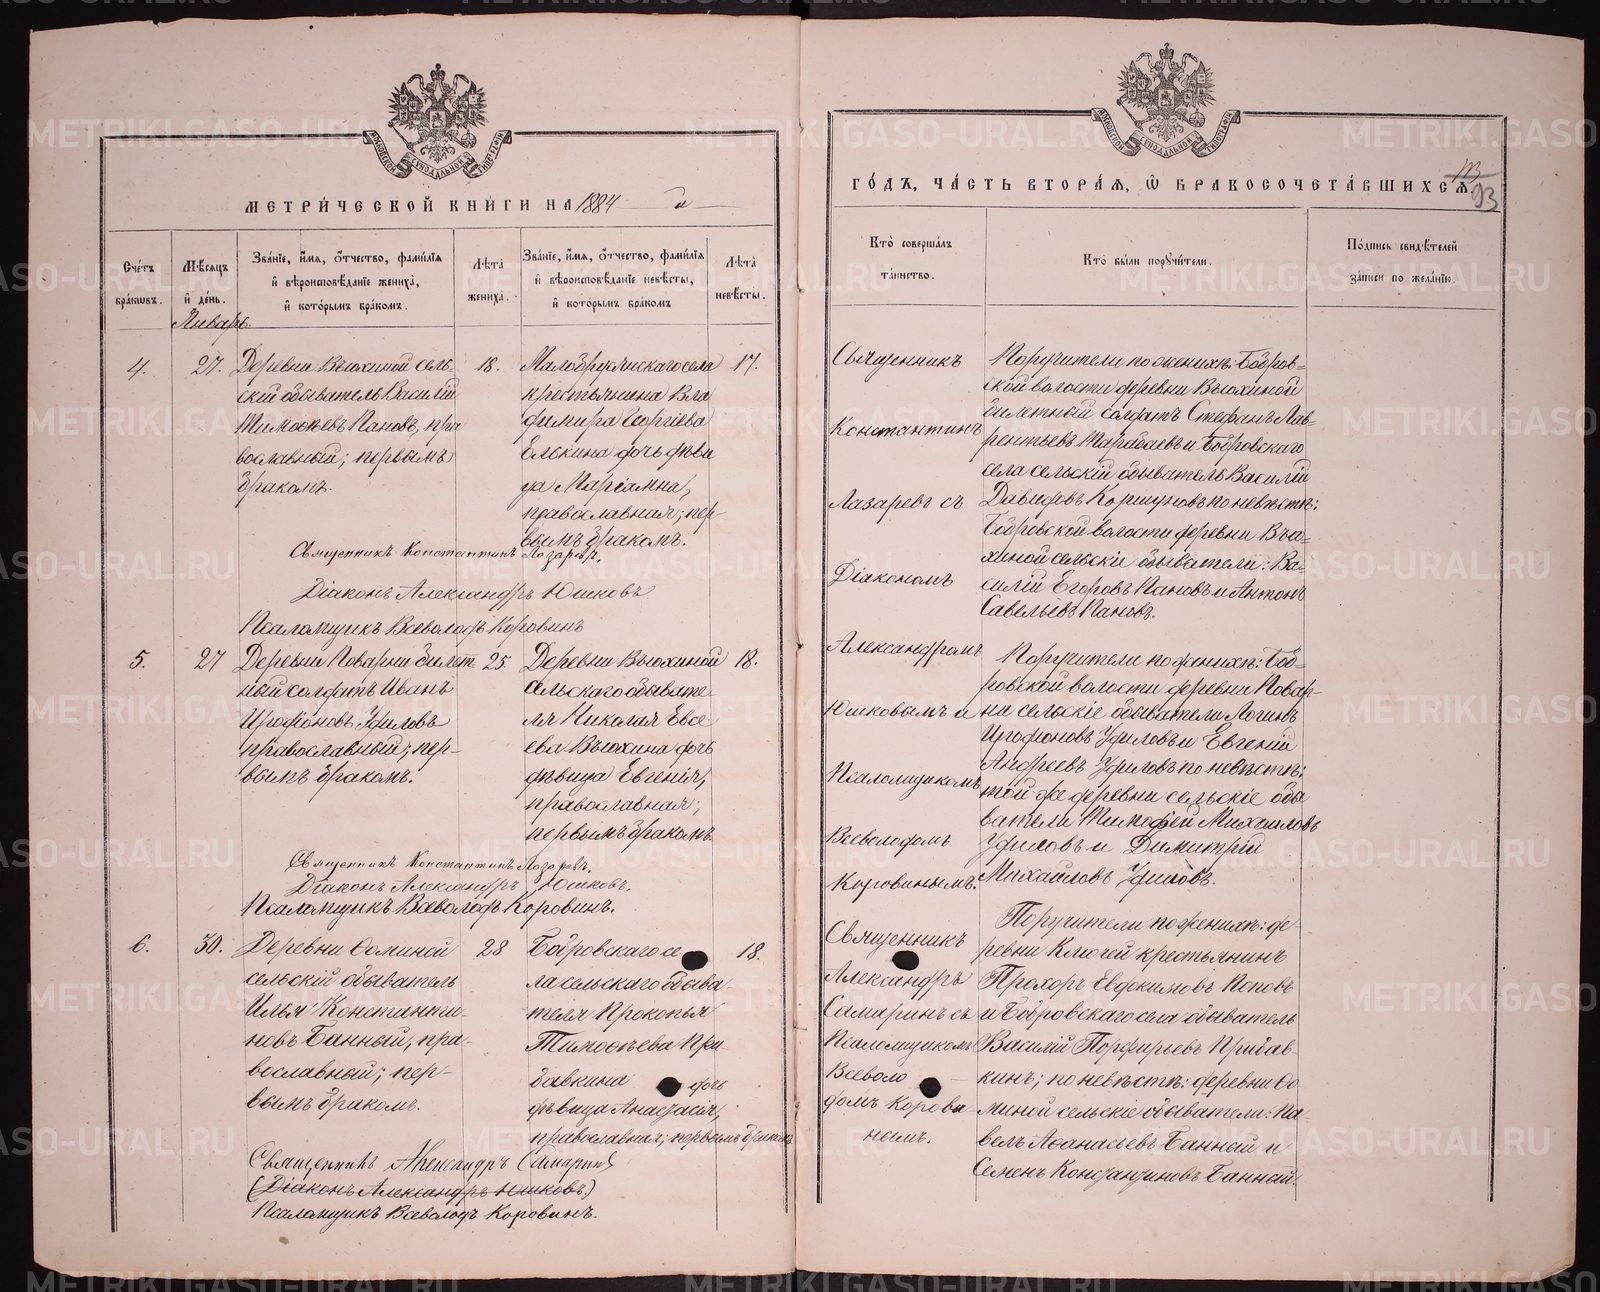 МЕТРИЧЕСКОЙ КНИГИ НА 1884 й
Счетъ браковъ.
Мѣсяцъ и день.
Званіе, имя, отчество, фамилія и вѣроисповѣданіе жениха, и которымъ бракомъ.
Лѣта жениха.
Званіе, имя, отчество, фамилія и вѣроисповѣданіе невѣсты, и которымъ бракомъ.
Лѣта невѣсты.
Январь.
4.
27.
Деревни Вьюхиной сель-
скій обыватель Василій
Тимоѳеевъ Пановъ, пра
вославный; первымъ
бракомъ.
18.
крестьянина Вла
димира Георгіева
Елькина дочь дѣви
ца Маріамна,
православная; пер-
вымъ бракомъ.
17.
Священникъ Константинъ Лазаревъ.
Діаконъ Александръ Юшковъ
Псаломщикъ Всеволодъ Коровинъ
5.
27
Деревни Поварни билет
ный солдатъ Иванъ
православный; пер-
вымъ бракомъ.
25
Деревни Вьюхиной
сельскаго обывате-
ля Николая Евсе
ева Вьюхина дочь
дѣвица Евгенія,
православная;
первымъ бракомъ.
18.
Священникъ Константинъ Лазаревъ.
Діаконъ Александръ Юшковъ.
Псаломщикъ Всеволодъ Коровинъ.
6.
30.
Деревни Ѳоминой
сельскій обыватель
Илья Константи-
новъ Банный, пра-
вославный; пер-
вымъ бракомъ.
28
Бобровскаго се
ла сельскаго обыва-
теля Прокопья
Тимоѳеева При
бавкина дочь
дѣвица Анастасія,
православная; первымъ бракомъ
18.
Священникъ Александръ Самаринъ
(Діаконъ Александръ Юшковъ)
Псаломщикъ Всеволодъ Коровинъ.
ГОДЪ, ЧАСТЬ ВТОРАЯ, Ѡ БРАКОСОЧЕТАВШИХСЯ
93
Кто совершалъ таинство.
Кто были поручители.
Подпись свидѣтелей записи по желанію.
Священникъ
Константинъ
Лазаревъ съ
Діакономъ
Александромъ
Юшковымъ и
Псаломщикомъ
Всеволодомъ
Коровинымъ.
Поручители по женихѣ: Бобров-
ской волости деревни Вьюхиной
билетный солдатъ Стефанъ Лав-
рентьевъ Тарабаевъ и Бобровскаго
села сельскій обыватель Василій
Давидовъ Коршуновъ по невѣстѣ:
Бобровской волости деревни Вью-
хиной сельскіи обыватели: Ва-
силій Егоровъ Пановъ и Антонъ
Савельевъ Пановъ.
Поручители по женихѣ: Боб-
ровской волости деревни Повар-
ни сельскіе обыватели Логинъ
Андреевъ по невѣстѣ:
той же деревни сельскіе обы
ватели Тимофей Михаиловъ
и Димитрій
Михаиловъ
Священникъ
Александръ
Самаринъ съ
Псаломщикомъ
Всеволо
домъ Корови
нымъ.
Поручители по женихѣ: де-
ревни Ключей крестьянинъ
Прохоръ Евдокимовъ Поповъ
и Бобровскаго села обыватель
Василій Порфирьевъ Прибав-
кинъ; по невѣстѣ: деревни Ѳо-
миной сельскіе обыватели: Па-
велъ Аѳанасьевъ Банный и
Семенъ Константиновъ Банный.